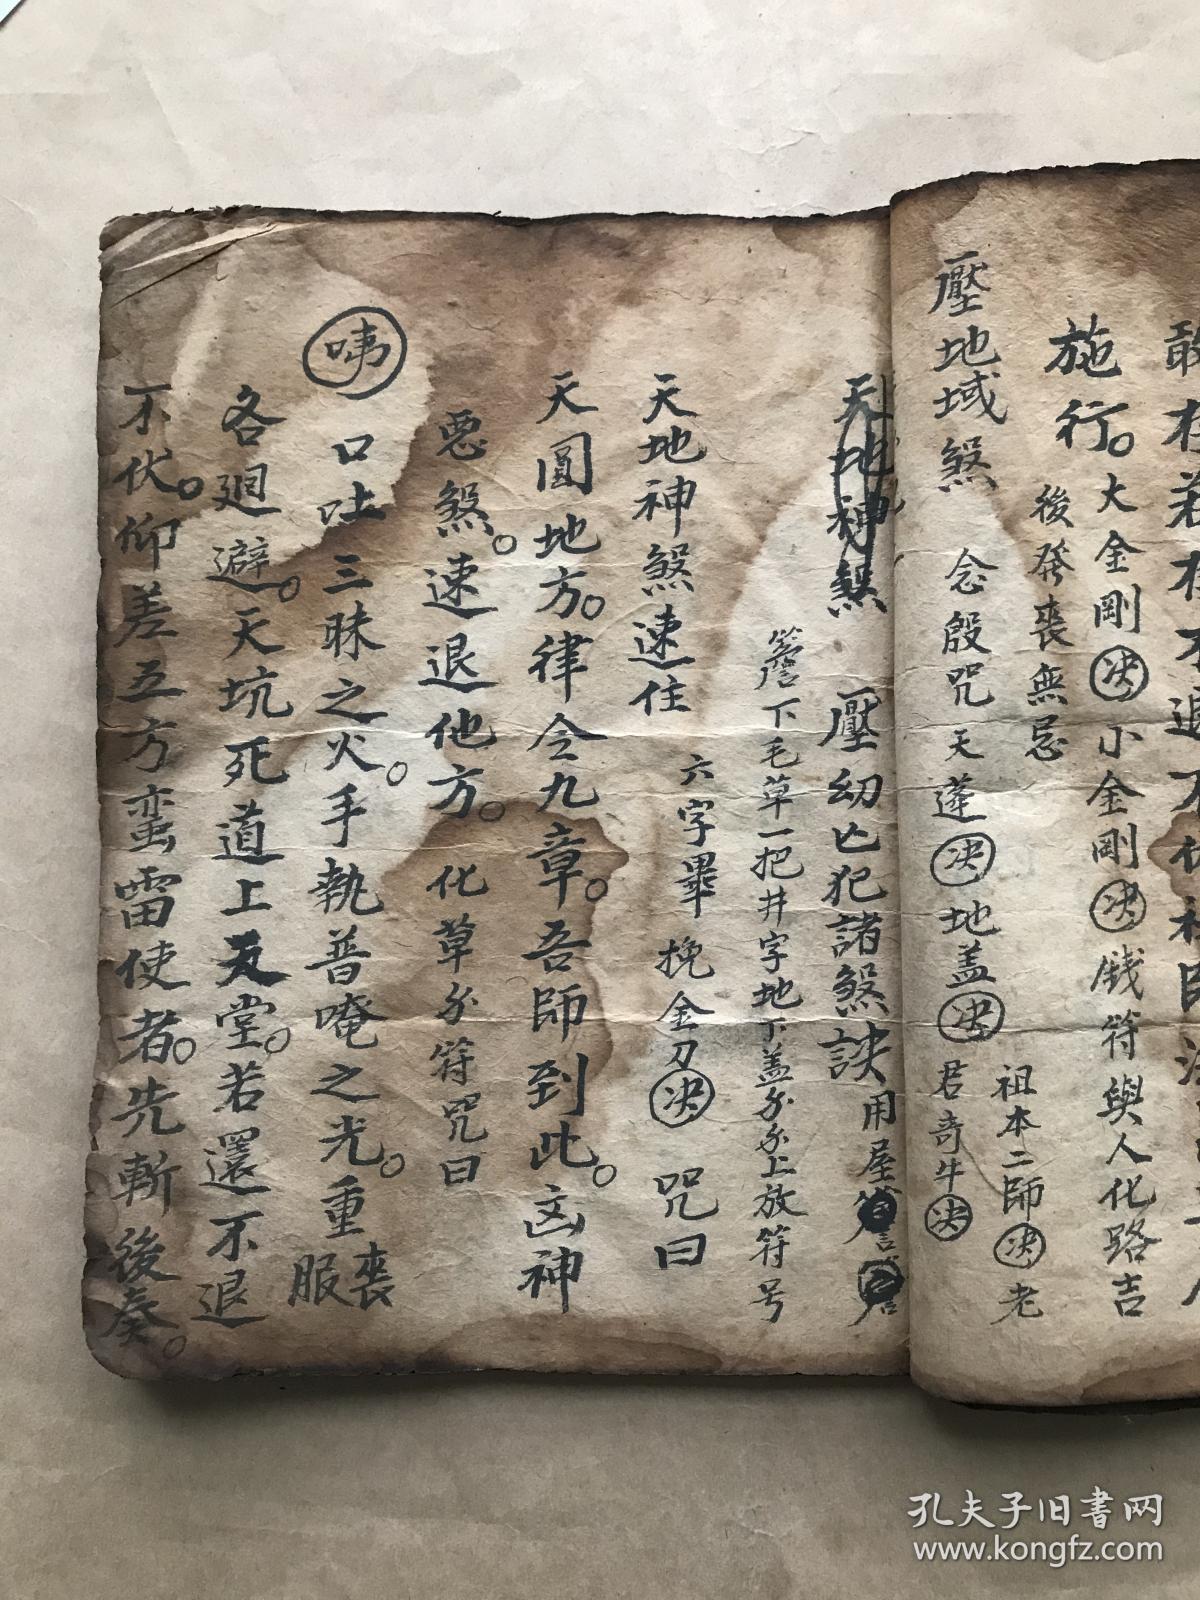 敢
施行。大金剛決小金剛決錢符與人化路吉
後發喪無忌
壓地域煞 念殷咒 天蓬決地盖決 祖本二師決老
君奇牛決
天地神煞 壓幼亡犯諸煞訣 用屋
簷下毛草一把井字地下盖 上放符号
天地神煞速住 六字畢 挽金刀決 咒曰
天圓地方。律令九章。吾師到此。凶神
惡煞。速退他方。化草 符咒曰
咦 口吐三昧之火。手執普唵之光。重喪
服
各廻避。天坑死道上天堂。若還不退
不伏。仰差五方蛮雷使者。先斬後奏。
孔夫子旧书网
www.kongfz.com